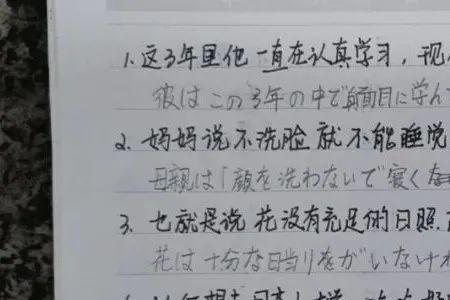 1. 这3年里他一直在认真学习，现
彼はこの3年の中で真面目に学ん
2. 妈妈说不洗脸就不能睡觉
母親は「顔を洗わないで寝く
3. 也就是说花没有充足的日照.
花は十分な日当りをがいなけれ